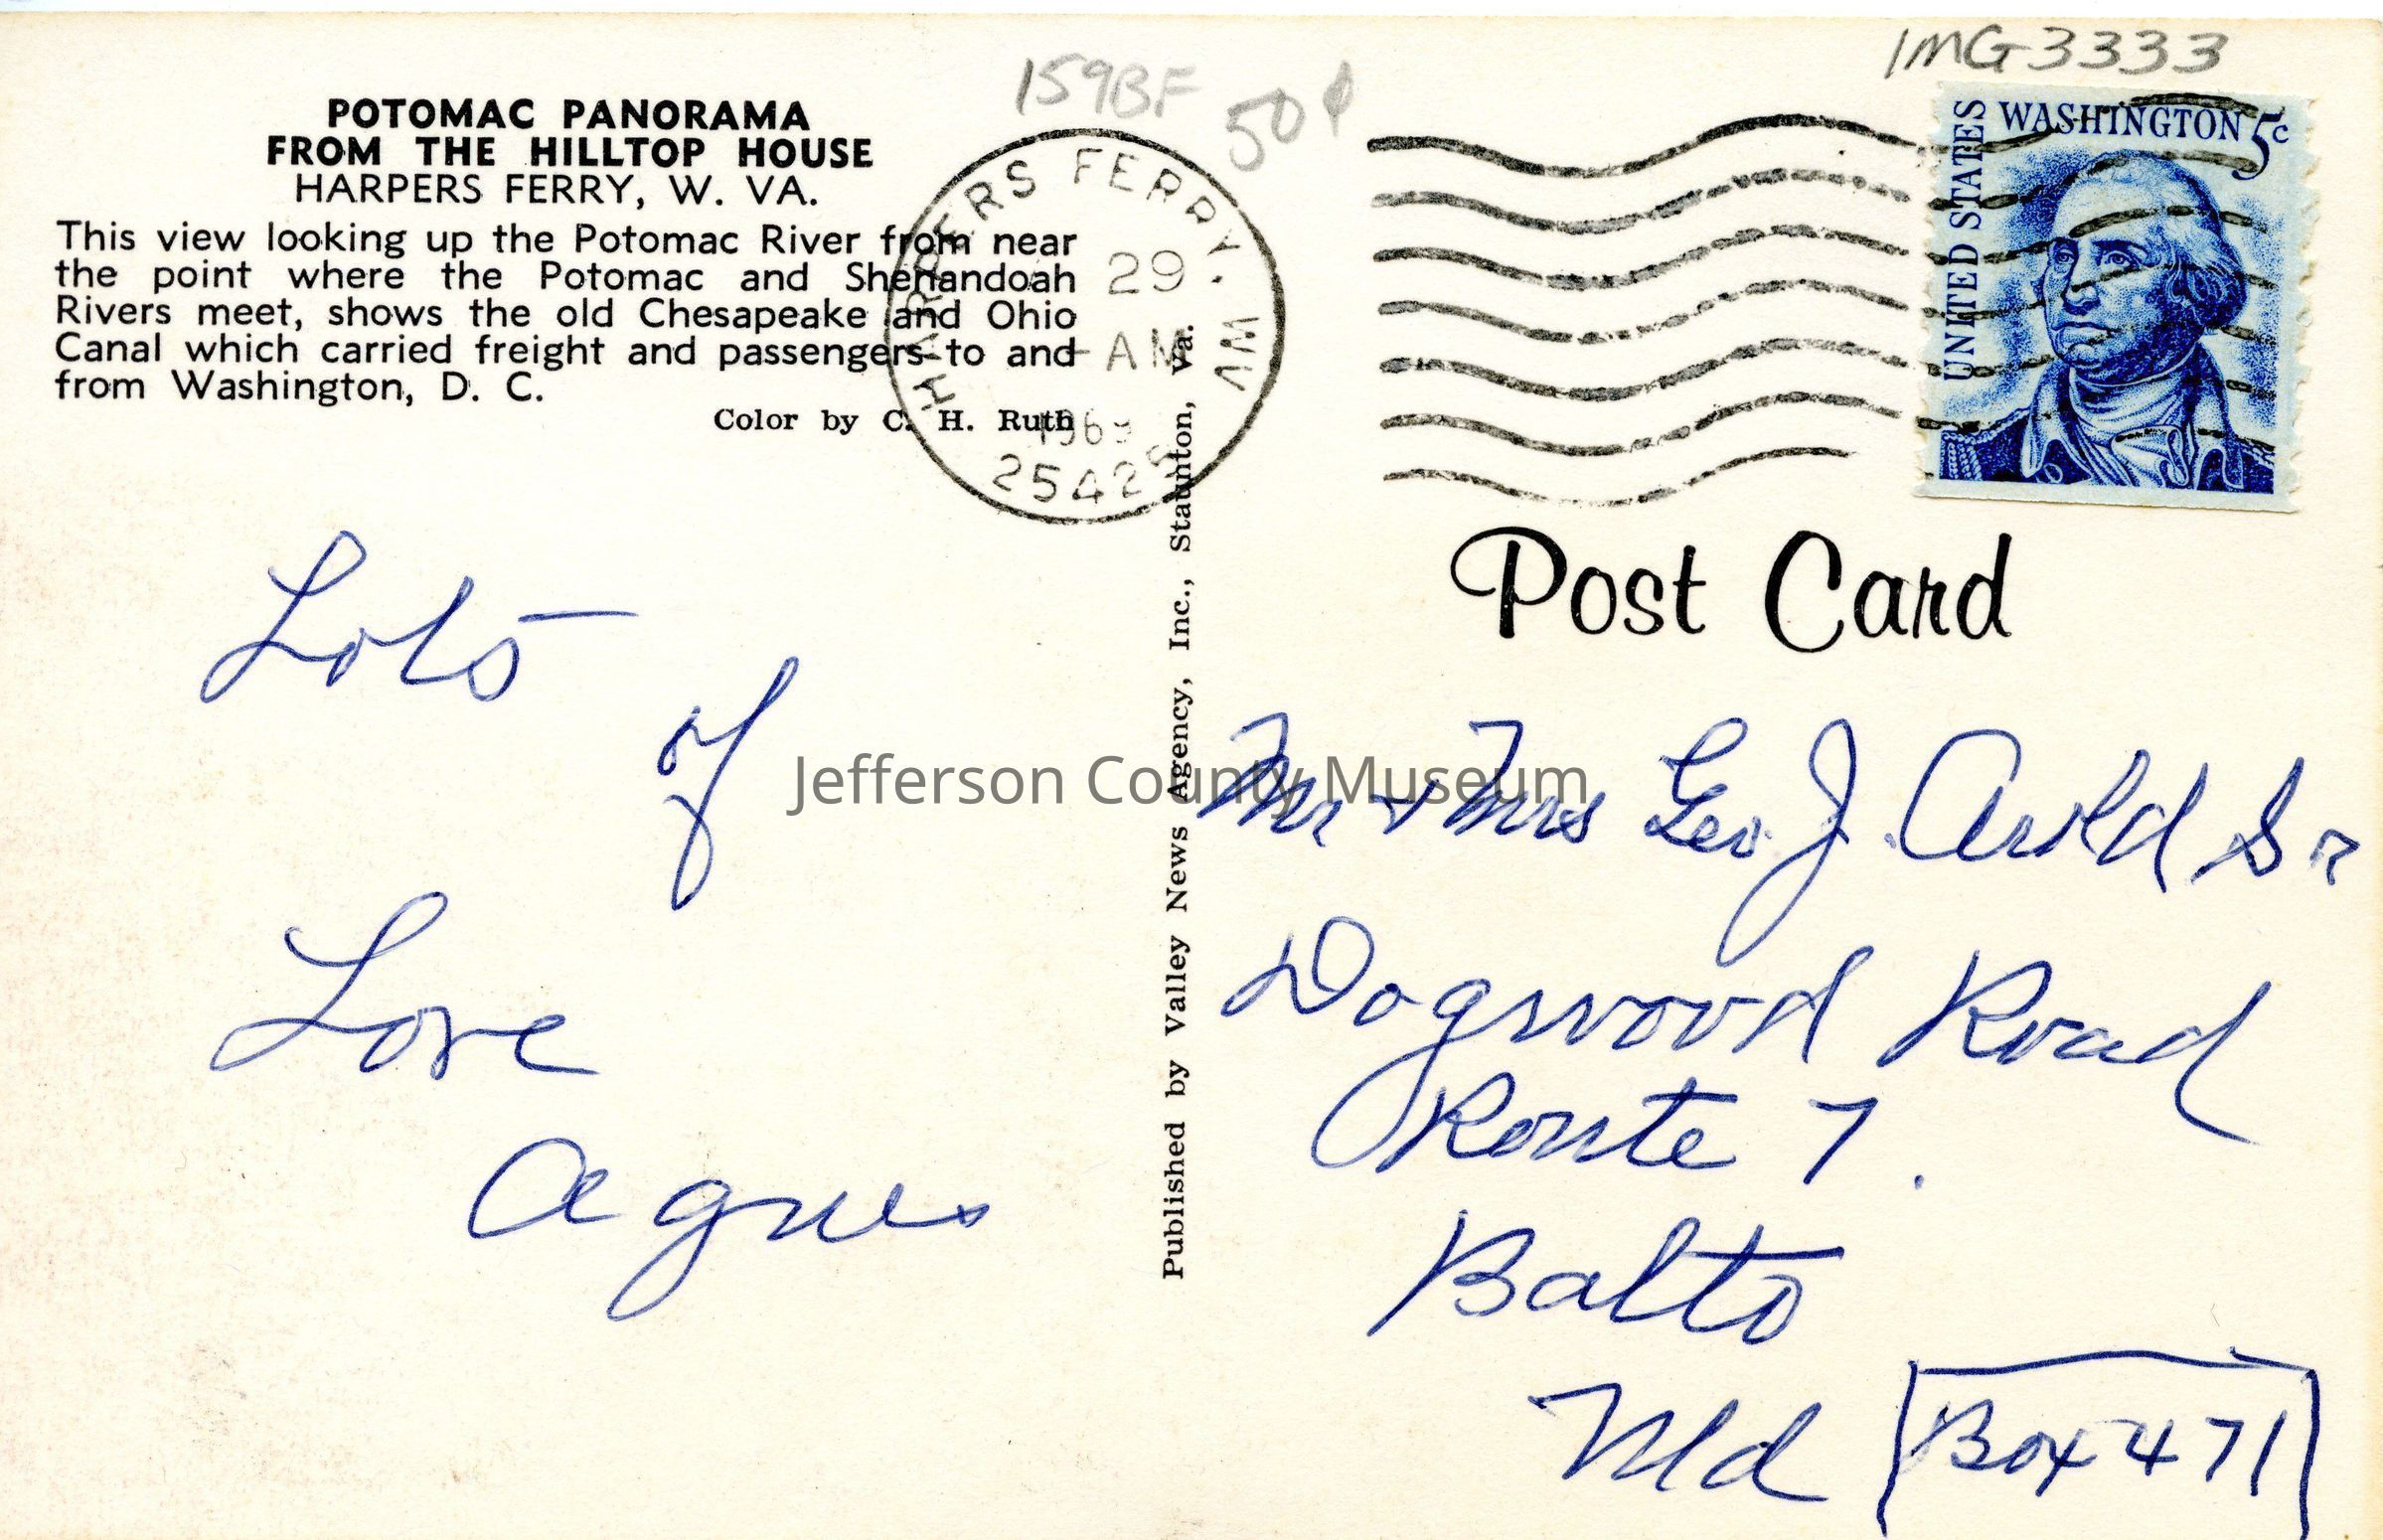 159BF 50¢
IMG3333
POTOMAC PANORAMA
FROM THE HILLTOP HOUSE
HARPERS FERRY, W. VA.
This view looking up the Potomac River from near
the point where the Potomac and Shenandoah
Rivers meet, shows the old Chesapeake and Ohio
Canal which carried freight and passengers to and
from Washington, D. C.
Color by C. H. Ruth
HARPERS FERRY, WV
29
AM
2542
UNITED STATES
WASHINGTON 5c
Post Card
Published by Valley News Agency, Inc., Staunton, Va.
Lots
of
Love
Agnes
Jefferson County Museum
Mr + Mrs Geo J. Sr
Dogwood Road
Route 7.
Balto
Md
Box 471